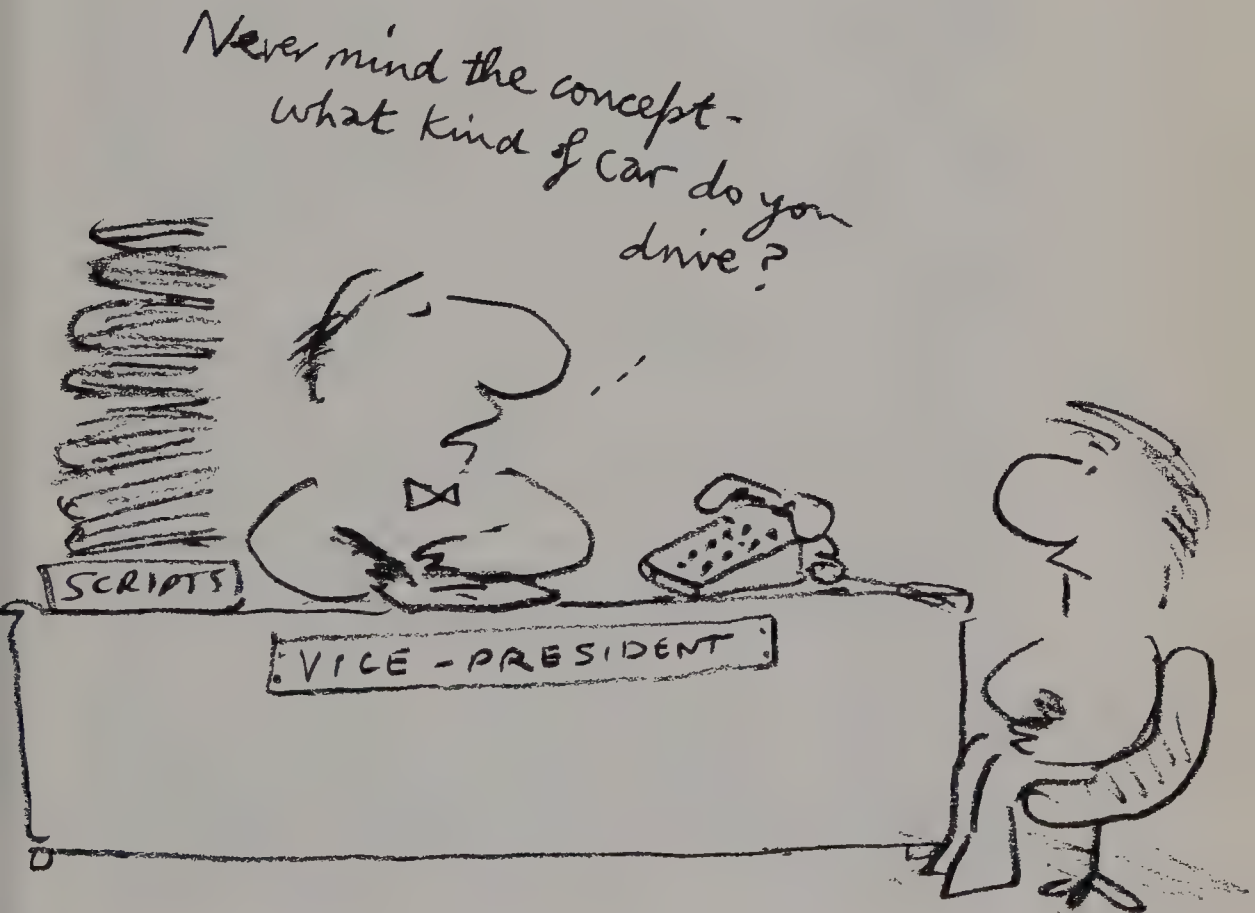 Never mind the concept -
what kind of car do you
drive?
SCRIPTS
VICE-PRESIDENT